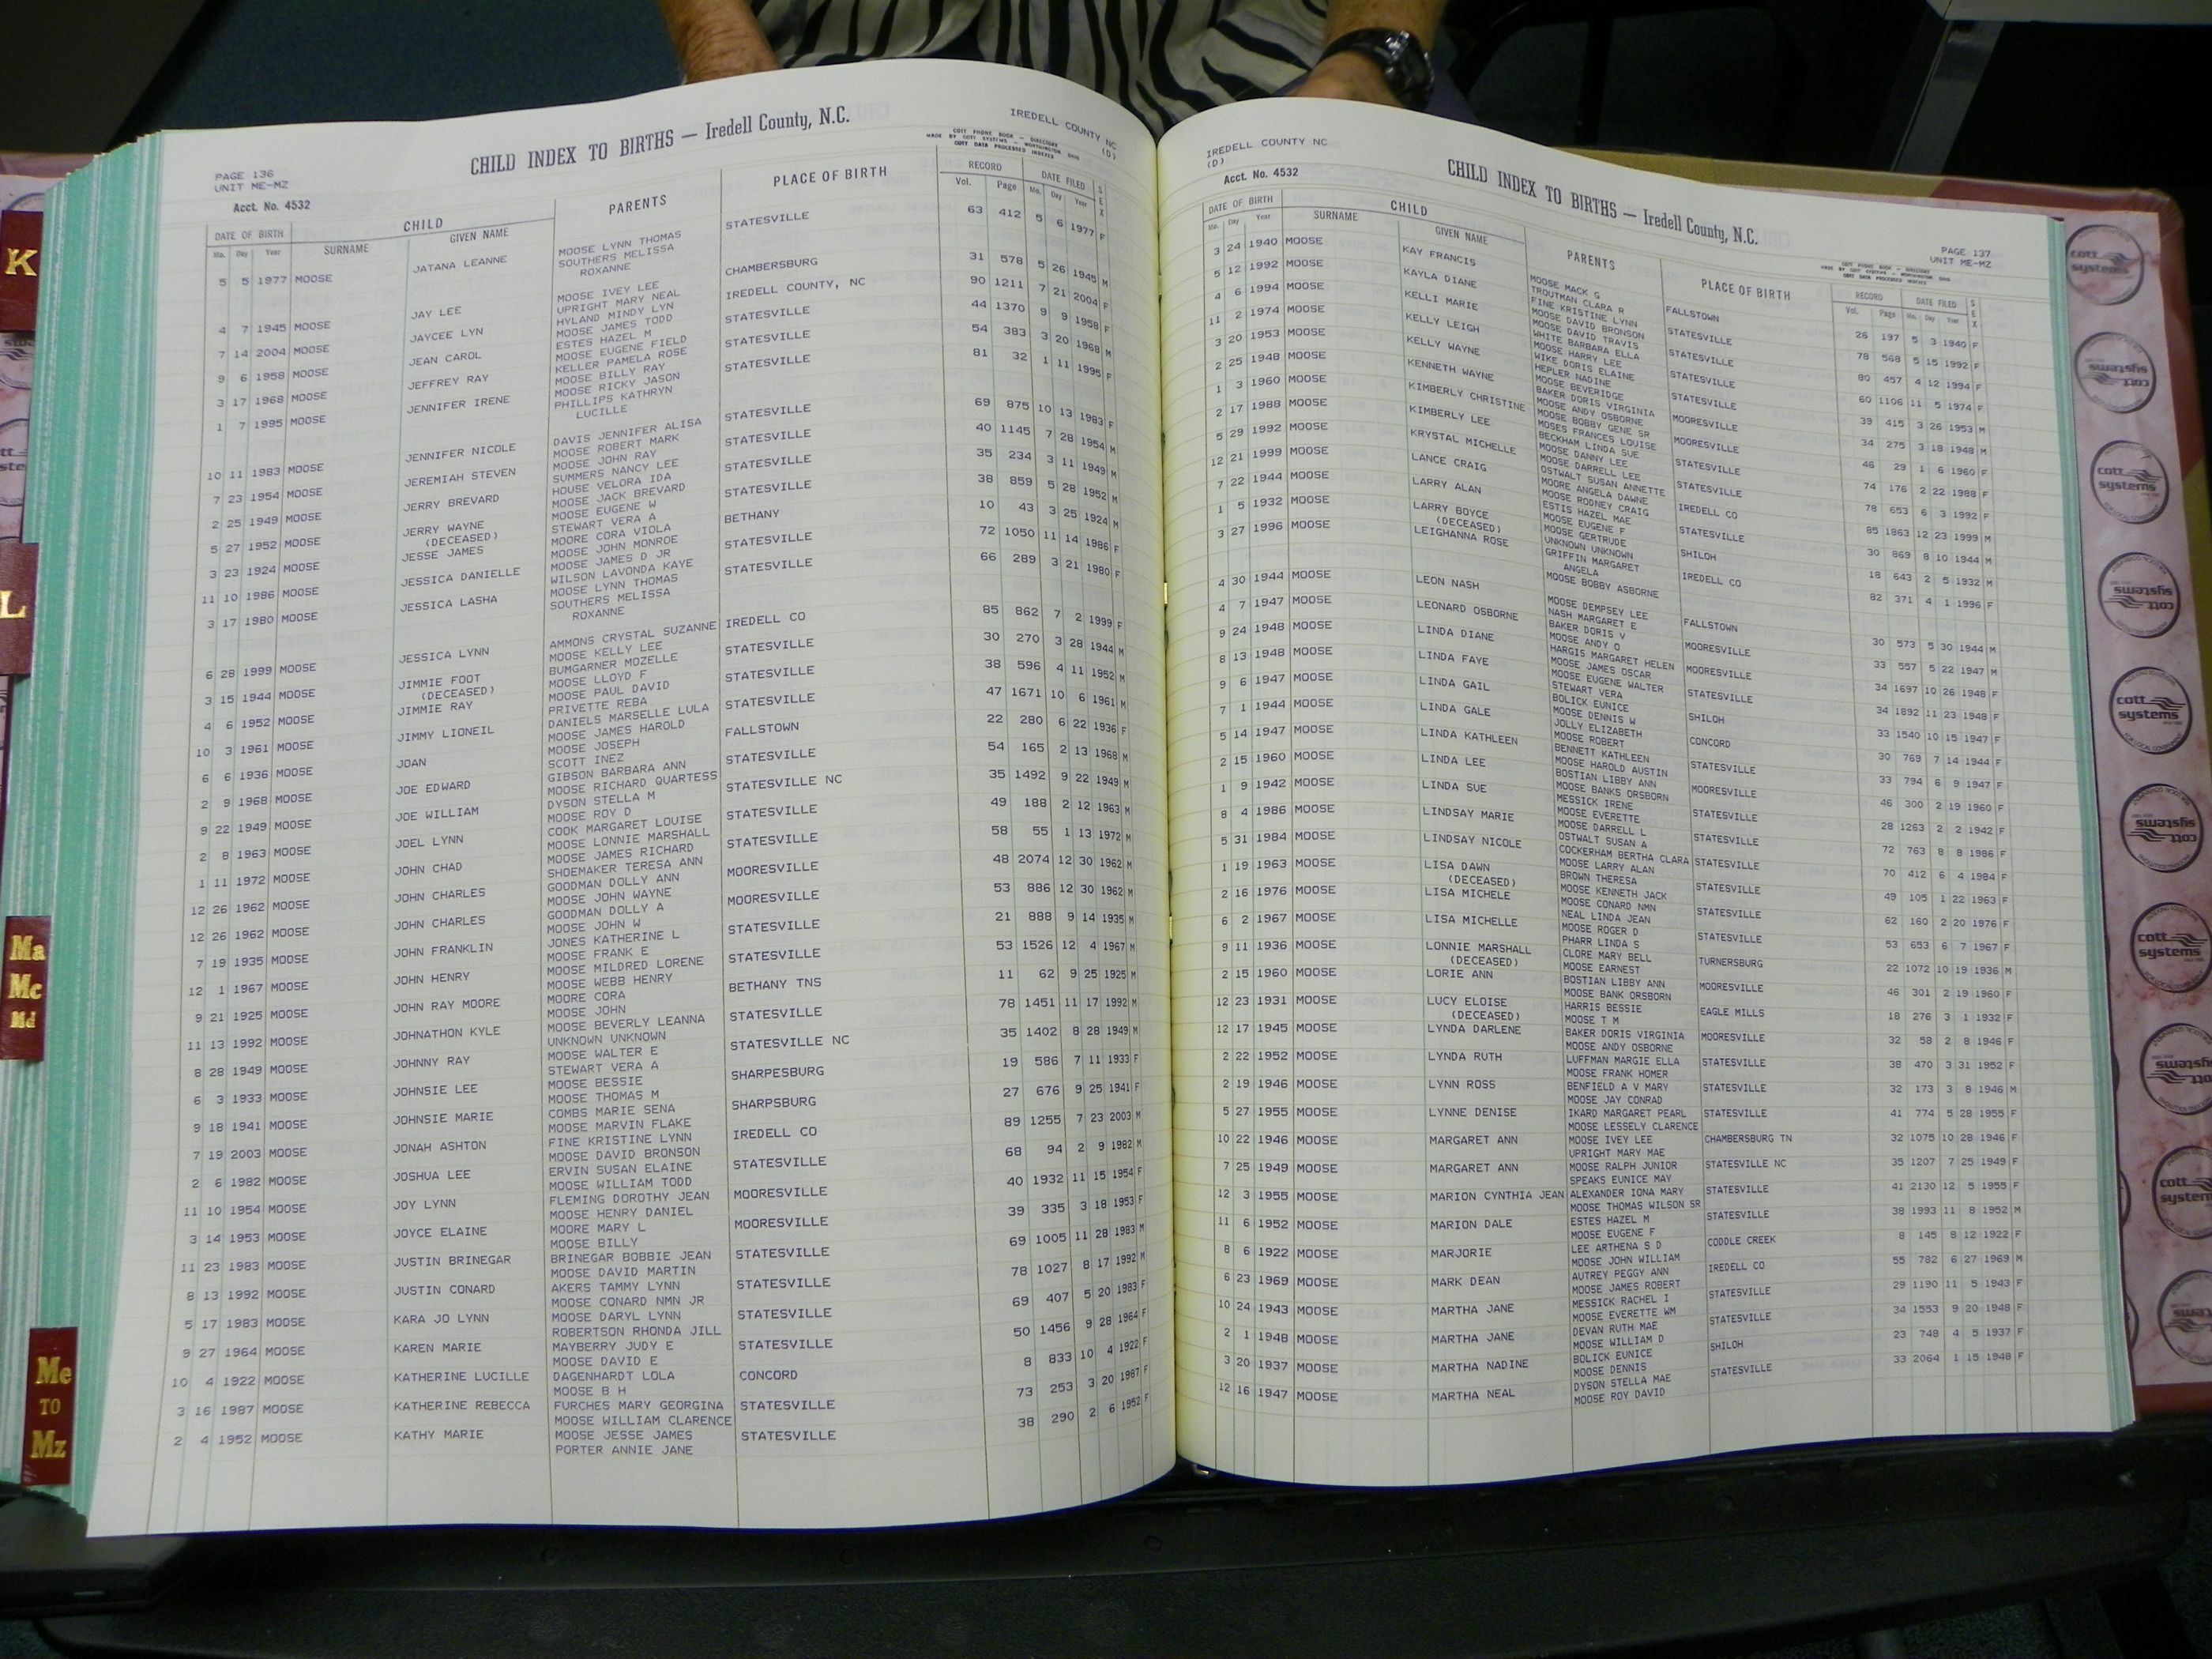 PAGE 136
UNIT ME-MZ
Acct. No. 4532
CHILD INDEX TO BIRTHS — Iredell County, N.C.
IREDELL COUNTY NC
(D)
COTT PHONE BOOK - DIRECTORY
MADE BY COTT SYSTEMS - WORTHINGTON OHIO
COTT DATA PROCESSED INDEXES
DATE OF BIRTH CHILD PARENTS PLACE OF BIRTH RECORD DATE FILED SEX
Mo. Day Year SURNAME GIVEN NAME Vol. Page Mo. Day Year
5 5 1977 MOOSE JATANA LEANNE MOOSE LYNN THOMAS STATESVILLE 63 412 5 6 1977 F
SOUTHERS MELISSA
ROXANNE
4 7 1945 MOOSE JAY LEE MOOSE IVEY LEE CHAMBERSBURG 31 578 5 26 1945 M
UPRIGHT MARY NEAL
7 14 2004 MOOSE JAYCEE LYN HYLAND MINDY LYN IREDELL COUNTY, NC 90 1211 7 21 2004 F
MOOSE JAMES TODD
9 6 1958 MOOSE JEAN CAROL ESTES HAZEL M STATESVILLE 44 1370 9 9 1958 F
MOOSE EUGENE FIELD
3 17 1968 MOOSE JEFFREY RAY KELLER PAMELA ROSE STATESVILLE 54 383 3 20 1968 M
MOOSE BILLY RAY
1 7 1995 MOOSE JENNIFER IRENE MOOSE RICKY JASON STATESVILLE 81 32 1 11 1995 F
PHILLIPS KATHRYN
LUCILLE
10 11 1983 MOOSE JENNIFER NICOLE DAVIS JENNIFER ALISA STATESVILLE 69 875 10 13 1983 F
MOOSE ROBERT MARK
7 23 1954 MOOSE JEREMIAH STEVEN MOOSE JOHN RAY STATESVILLE 40 1145 7 28 1954 M
SUMMERS NANCY LEE
2 25 1949 MOOSE JERRY BREVARD HOUSE VELORA IDA STATESVILLE 35 234 3 11 1949 M
MOOSE JACK BREVARD
5 27 1952 MOOSE JERRY WAYNE MOOSE EUGENE W STATESVILLE 38 859 5 28 1952 M
(DECEASED) STEWART VERA A
3 23 1924 MOOSE JESSE JAMES MOORE CORA VIOLA BETHANY 10 43 3 25 1924 M
MOOSE JOHN MONROE
11 10 1986 MOOSE JESSICA DANIELLE MOOSE JAMES D JR STATESVILLE 72 1050 11 14 1986 F
WILSON LAVONDA KAYE
3 17 1980 MOOSE JESSICA LASHA MOOSE LYNN THOMAS STATESVILLE 66 289 3 21 1980 F
SOUTHERS MELISSA
ROXANNE
6 28 1999 MOOSE JESSICA LYNN AMMONS CRYSTAL SUZANNE IREDELL CO 85 862 7 2 1999 F
MOOSE KELLY LEE
3 15 1944 MOOSE JIMMIE FOOT BUMGARNER MOZELLE STATESVILLE 30 270 3 28 1944 M
(DECEASED) MOOSE LLOYD F
4 6 1952 MOOSE JIMMIE RAY MOOSE PAUL DAVID STATESVILLE 38 596 4 11 1952 M
PRIVETTE REBA
10 3 1961 MOOSE JIMMY LIONEIL DANIELS MARSELLE LULA STATESVILLE 47 1671 10 6 1961 M
MOOSE JAMES HAROLD
6 6 1936 MOOSE JOAN MOOSE JOSEPH FALLSTOWN 22 280 6 22 1936 F
SCOTT INEZ
2 9 1968 MOOSE JOE EDWARD GIBSON BARBARA ANN STATESVILLE 54 165 2 13 1968 M
MOOSE RICHARD QUARTESS
9 22 1949 MOOSE JOE WILLIAM DYSON STELLA M STATESVILLE NC 35 1492 9 22 1949 M
MOOSE ROY D
2 8 1963 MOOSE JOEL LYNN COOK MARGARET LOUISE STATESVILLE 49 188 2 12 1963 M
MOOSE LONNIE MARSHALL
1 11 1972 MOOSE JOHN CHAD MOOSE JAMES RICHARD STATESVILLE 58 55 1 13 1972 M
SHOEMAKER TERESA ANN
12 26 1962 MOOSE JOHN CHARLES GOODMAN DOLLY ANN MOORESVILLE 48 2074 12 30 1962 M
MOOSE JOHN WAYNE
12 26 1962 MOOSE JOHN CHARLES GOODMAN DOLLY A MOORESVILLE 53 886 12 30 1962 M
MOOSE JOHN W
7 19 1935 MOOSE JOHN FRANKLIN JONES KATHERINE L STATESVILLE 21 888 9 14 1935 M
MOOSE FRANK E
12 1 1967 MOOSE JOHN HENRY MOOSE MILDRED LORENE STATESVILLE 53 1526 12 4 1967 M
MOOSE WEBB HENRY
9 21 1925 MOOSE JOHN RAY MOORE MOORE CORA BETHANY TNS 11 62 9 25 1925 M
MOOSE JOHN
11 13 1992 MOOSE JOHNATHON KYLE MOOSE BEVERLY LEANNA STATESVILLE 78 1451 11 17 1992 M
UNKNOWN UNKNOWN
8 28 1949 MOOSE JOHNNY RAY MOOSE WALTER E STATESVILLE NC 35 1402 8 28 1949 M
STEWART VERA A
6 3 1933 MOOSE JOHNSIE LEE MOOSE BESSIE SHARPESBURG 19 586 7 11 1933 F
MOOSE THOMAS M
9 18 1941 MOOSE JOHNSIE MARIE COMBS MARIE SENA SHARPSBURG 27 676 9 25 1941 F
MOOSE MARVIN FLAKE
7 19 2003 MOOSE JONAH ASHTON FINE KRISTINE LYNN IREDELL CO 89 1255 7 23 2003 M
MOOSE DAVID BRONSON
2 6 1982 MOOSE JOSHUA LEE ERVIN SUSAN ELAINE STATESVILLE 68 94 2 9 1982 M
MOOSE WILLIAM TODD
11 10 1954 MOOSE JOY LYNN FLEMING DOROTHY JEAN MOORESVILLE 40 1932 11 15 1954 F
MOOSE HENRY DANIEL
3 14 1953 MOOSE JOYCE ELAINE MOORE MARY L MOORESVILLE 39 335 3 18 1953 F
MOOSE BILLY
11 23 1983 MOOSE JUSTIN BRINEGAR BRINEGAR BOBBIE JEAN STATESVILLE 69 1005 11 28 1983 M
MOOSE DAVID MARTIN
8 13 1992 MOOSE JUSTIN CONARD AKERS TAMMY LYNN STATESVILLE 78 1027 8 17 1992 M
MOOSE CONARD NMN JR
5 17 1983 MOOSE KARA JO LYNN MOOSE DARYL LYNN STATESVILLE 69 407 5 20 1983 F
ROBERTSON RHONDA JILL
9 27 1964 MOOSE KAREN MARIE MAYBERRY JUDY E STATESVILLE 50 1456 9 28 1964 F
MOOSE DAVID E
10 4 1922 MOOSE KATHERINE LUCILLE DAGENHARDT LOLA CONCORD 8 833 10 4 1922 F
MOOSE B H
3 16 1987 MOOSE KATHERINE REBECCA FURCHES MARY GEORGINA STATESVILLE 73 253 3 20 1987 F
MOOSE WILLIAM CLARENCE
2 4 1952 MOOSE KATHY MARIE MOOSE JESSE JAMES STATESVILLE 38 290 2 6 1952 F
PORTER ANNIE JANE
IREDELL COUNTY NC
(D)
Acct. No. 4532
CHILD INDEX TO BIRTHS — Iredell County, N.C.
PAGE 137
UNIT ME-MZ
COTT PHONE BOOK - DIRECTORY
MADE BY COTT SYSTEMS - WORTHINGTON OHIO
COTT DATA PROCESSED INDEXES
DATE OF BIRTH CHILD PARENTS PLACE OF BIRTH RECORD DATE FILED SEX
Mo. Day Year SURNAME GIVEN NAME Vol. Page Mo. Day Year
3 24 1940 MOOSE KAY FRANCIS MOOSE MACK G FALLSTOWN 26 197 5 3 1940 F
TROUTMAN CLARA R
5 12 1992 MOOSE KAYLA DIANE FINE KRISTINE LYNN STATESVILLE 78 568 5 15 1992 F
MOOSE DAVID BRONSON
4 6 1994 MOOSE KELLI MARIE MOOSE DAVID TRAVIS STATESVILLE 80 457 4 12 1994 F
WHITE BARBARA ELLA
11 2 1974 MOOSE KELLY LEIGH MOOSE HARRY LEE STATESVILLE 60 1106 11 5 1974 F
WIKE DORIS ELAINE
3 20 1953 MOOSE KELLY WAYNE HEPLER NADINE MOORESVILLE 39 415 3 26 1953 M
MOOSE BEVERIDGE
2 25 1948 MOOSE KENNETH WAYNE BAKER DORIS VIRGINIA MOORESVILLE 34 275 3 18 1948 M
MOOSE ANDY OSBORNE
1 3 1960 MOOSE KIMBERLY CHRISTINE MOOSE BOBBY GENE SR STATESVILLE 46 29 1 6 1960 F
MOSES FRANCES LOUISE
2 17 1988 MOOSE KIMBERLY LEE BECKHAM LINDA SUE STATESVILLE 74 176 2 22 1988 F
MOOSE DANNY LEE
5 29 1992 MOOSE KRYSTAL MICHELLE MOOSE DARRELL LEE IREDELL CO 78 653 6 3 1992 F
OSTWALT SUSAN ANNETTE
12 21 1999 MOOSE LANCE CRAIG MOORE ANGELA DAWNE STATESVILLE 85 1863 12 23 1999 M
MOOSE RODNEY CRAIG
7 22 1944 MOOSE LARRY ALAN ESTIS HAZEL MAE SHILOH 30 869 8 10 1944 M
MOOSE EUGENE F
1 5 1932 MOOSE LARRY BOYCE MOOSE GERTRUDE IREDELL CO 18 643 2 5 1932 M
(DECEASED) UNKNOWN UNKNOWN
3 27 1996 MOOSE LEIGHANNA ROSE GRIFFIN MARGARET 82 371 4 1 1996 F
ANGELA
MOOSE BOBBY ASBORNE
4 30 1944 MOOSE LEON NASH MOOSE DEMPSEY LEE FALLSTOWN 30 573 5 30 1944 M
NASH MARGARET E
4 7 1947 MOOSE LEONARD OSBORNE BAKER DORIS V MOORESVILLE 33 557 5 22 1947 M
MOOSE ANDY O
9 24 1948 MOOSE LINDA DIANE HARGIS MARGARET HELEN MOORESVILLE 34 1697 10 26 1948 F
MOOSE JAMES OSCAR
8 13 1948 MOOSE LINDA FAYE MOOSE EUGENE WALTER STATESVILLE 34 1892 11 23 1948 F
STEWART VERA
9 6 1947 MOOSE LINDA GAIL BOLICK EUNICE SHILOH 33 1540 10 15 1947 F
MOOSE DENNIS W
7 1 1944 MOOSE LINDA GALE JOLLY ELIZABETH CONCORD 30 769 7 14 1944 F
MOOSE ROBERT
5 14 1947 MOOSE LINDA KATHLEEN BENNETT KATHLEEN STATESVILLE 33 794 6 9 1947 F
MOOSE HAROLD AUSTIN
2 15 1960 MOOSE LINDA LEE BOSTIAN LIBBY ANN MOORESVILLE 46 300 2 19 1960 F
MOOSE BANKS ORSBORN
1 9 1942 MOOSE LINDA SUE MESSICK IRENE STATESVILLE 28 1263 2 2 1942 F
MOOSE EVERETTE
8 4 1986 MOOSE LINDSAY MARIE MOOSE DARRELL L STATESVILLE 72 763 8 8 1986 F
OSTWALT SUSAN A
5 31 1984 MOOSE LINDSAY NICOLE COCKERHAM BERTHA CLARA STATESVILLE 70 412 6 4 1984 F
MOOSE LARRY ALAN
1 19 1963 MOOSE LISA DAWN BROWN THERESA STATESVILLE 49 105 1 22 1963 F
(DECEASED) MOOSE KENNETH JACK
2 16 1976 MOOSE LISA MICHELE MOOSE CONARD NMN STATESVILLE 62 160 2 20 1976 F
NEAL LINDA JEAN
6 2 1967 MOOSE LISA MICHELLE MOOSE ROGER D STATESVILLE 53 653 6 7 1967 F
PHARR LINDA S
9 11 1936 MOOSE LONNIE MARSHALL CLORE MARY BELL TURNERSBURG 22 1072 10 19 1936 M
(DECEASED) MOOSE EARNEST
2 15 1960 MOOSE LORIE ANN BOSTIAN LIBBY ANN MOORESVILLE 46 301 2 19 1960 F
MOOSE BANK ORSBORN
12 23 1931 MOOSE LUCY ELOISE HARRIS BESSIE EAGLE MILLS 18 276 3 1 1932 F
(DECEASED) MOOSE T M
12 17 1945 MOOSE LYNDA DARLENE BAKER DORIS VIRGINIA MOORESVILLE 32 58 2 8 1946 F
MOOSE ANDY OSBORNE
2 22 1952 MOOSE LYNDA RUTH LUFFMAN MARGIE ELLA STATESVILLE 38 470 3 31 1952 F
MOOSE FRANK HOMER
2 19 1946 MOOSE LYNN ROSS BENFIELD A V MARY STATESVILLE 32 173 3 8 1946 M
MOOSE JAY CONRAD
5 27 1955 MOOSE LYNNE DENISE IKARD MARGARET PEARL STATESVILLE 41 774 5 28 1955 F
MOOSE LESSELY CLARENCE
10 22 1946 MOOSE MARGARET ANN MOOSE IVEY LEE CHAMBERSBURG TN 32 1075 10 28 1946 F
UPRIGHT MARY MAE
7 25 1949 MOOSE MARGARET ANN MOOSE RALPH JUNIOR STATESVILLE NC 35 1207 7 25 1949 F
SPEAKS EUNICE MAY
12 3 1955 MOOSE MARION CYNTHIA JEAN ALEXANDER IONA MARY STATESVILLE 41 2130 12 5 1955 F
MOOSE THOMAS WILSON SR
11 6 1952 MOOSE MARION DALE ESTES HAZEL M STATESVILLE 38 1993 11 8 1952 M
MOOSE EUGENE F
8 6 1922 MOOSE MARJORIE LEE ARTHENA S D CODDLE CREEK 8 145 8 12 1922 F
MOOSE JOHN WILLIAM
6 23 1969 MOOSE MARK DEAN AUTREY PEGGY ANN IREDELL CO 55 782 6 27 1969 M
MOOSE JAMES ROBERT
10 24 1943 MOOSE MARTHA JANE MESSICK RACHEL I STATESVILLE 29 1190 11 5 1943 F
MOOSE EVERETTE WM
2 1 1948 MOOSE MARTHA JANE DEVAN RUTH MAE STATESVILLE 34 1553 9 20 1948 F
MOOSE WILLIAM D
3 20 1937 MOOSE MARTHA NADINE BOLICK EUNICE SHILOH 23 748 4 5 1937 F
MOOSE DENNIS
12 16 1947 MOOSE MARTHA NEAL DYSON STELLA MAE STATESVILLE 33 2064 1 15 1948 F
MOOSE ROY DAVID
K
L
Ma
Mc
Md
Me
TO
Mz
cott
systems